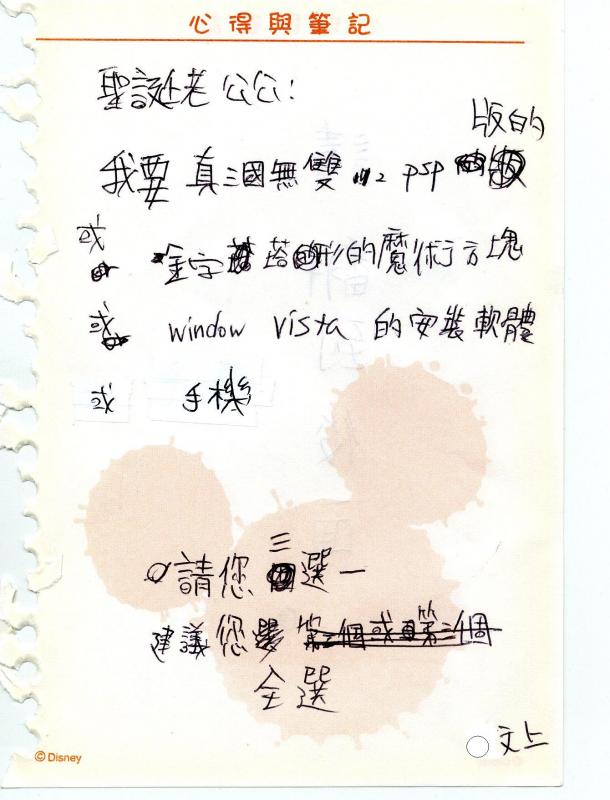 心得與筆記
聖誕老公公:
版的
我要 真三國無雙 2 psp
或 金字塔形的魔術方塊
或 window vista 的安裝軟體
或 手機
請您三選一
建議您選 第二個或第三個
全選
文上
©Disney